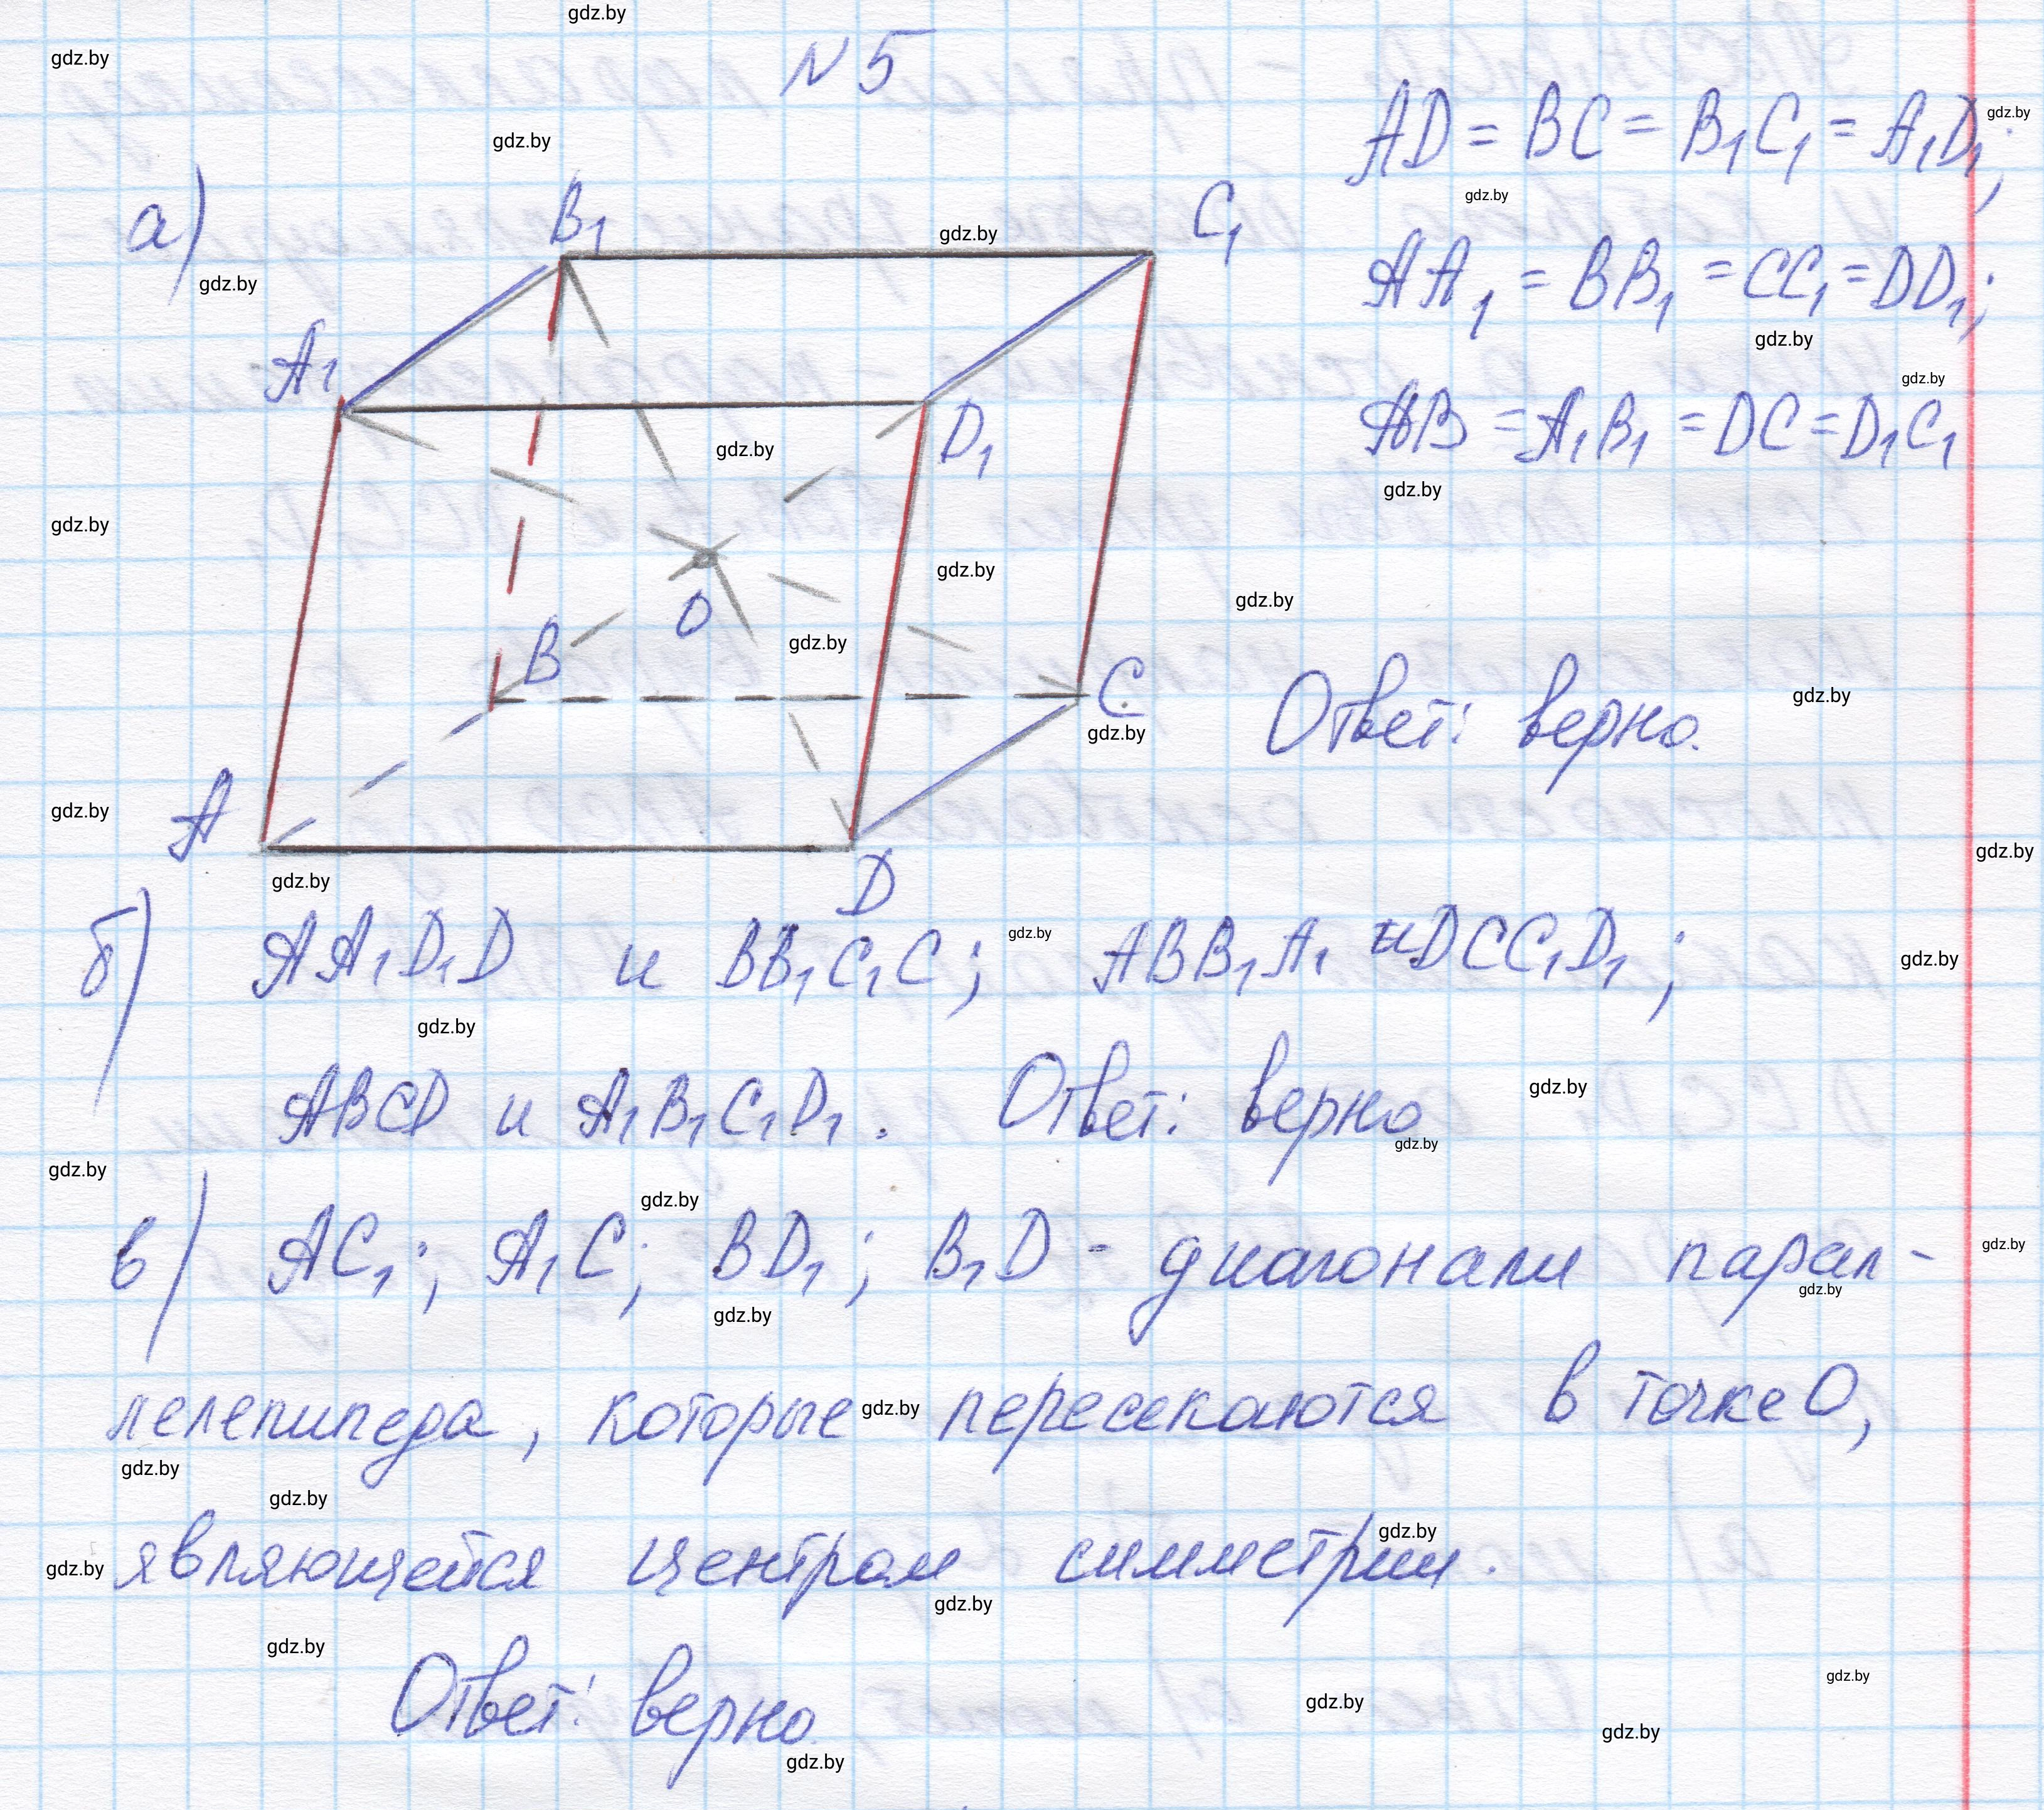 N 5
а)
AD = BC = B₁C₁ = A₁D₁;
AA₁ = BB₁ = CC₁ = DD₁;
AB = A₁B₁ = DC = D₁C₁
B₁
C₁
A₁
D₁
O
B
C
A
D
Ответ: верно.
б) AA₁D₁D и BB₁C₁C; ABB₁A₁ и DCC₁D₁;
ABCD и A₁B₁C₁D₁. Ответ: верно
в) AC₁; A₁C; BD₁; B₁D - диагонали парал-
лелепипеда, которые пересекаются в точке O,
являющейся центром симметрии.
Ответ: верно
gdz.by